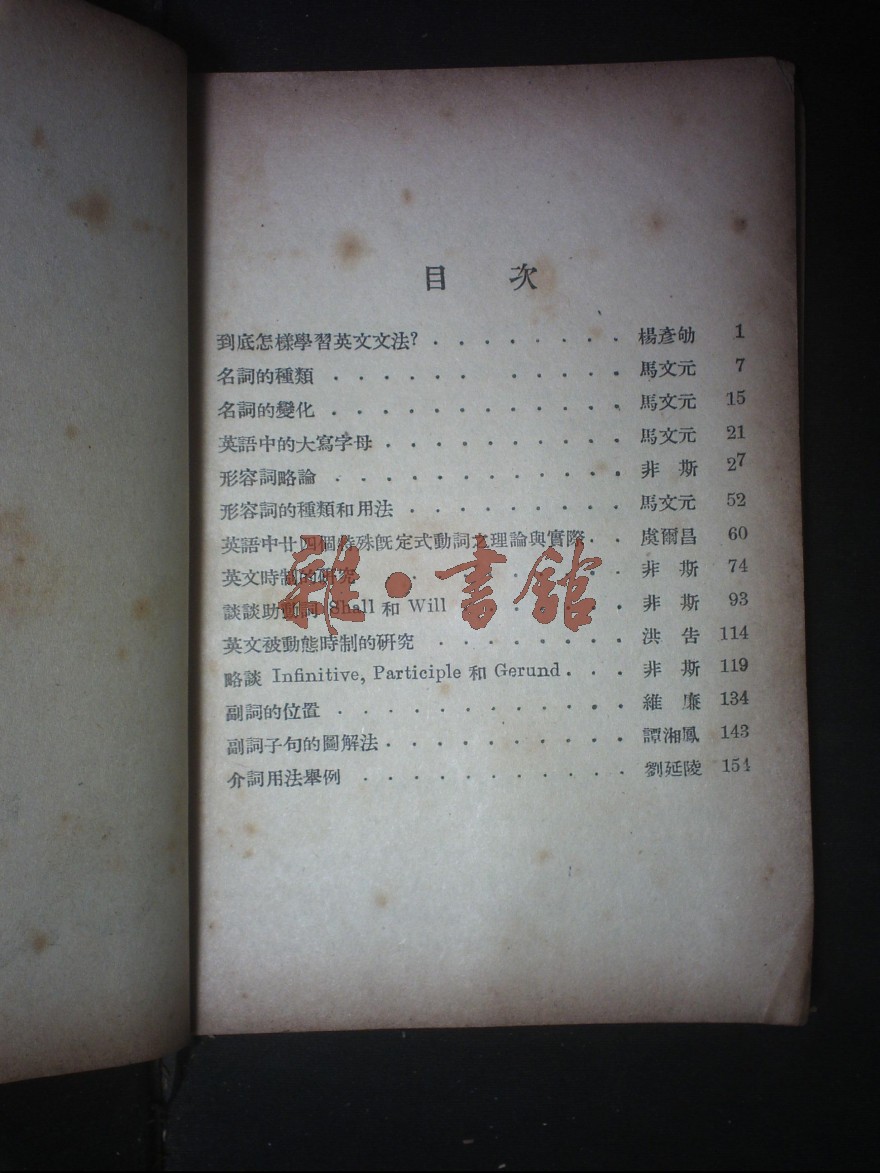 目 次
到底怎樣學習英文文法? . . . . . . . . . 楊彥劬 1
名詞的種類 . . . . . . . . . . . . 馬文元 7
名詞的變化 . . . . . . . . . . . . . 馬文元 15
英語中的大寫字母 . . . . . . . . . . . 馬文元 21
形容詞略論 . . . . . . . . . . . . . 非 斯 27
形容詞的種類和用法 . . . . . . . . . . 馬文元 52
英語中廿四個特殊旣定式動詞之理論與實際 . . 虞爾昌 60
英文時制的研究 . . . . . . . . . . . 非 斯 74
談談助動詞 Shall 和 Will . . . . . . . . 非 斯 93
英文被動態時制的研究 . . . . . . . . . 洪 告 114
略談 Infinitive, Participle 和 Gerund . . . 非 斯 119
副詞的位置 . . . . . . . . . . . . . 維 廉 134
副詞子句的圖解法 . . . . . . . . . . . 譚湘鳳 143
介詞用法舉例 . . . . . . . . . . . . 劉延陵 154
雜·書館